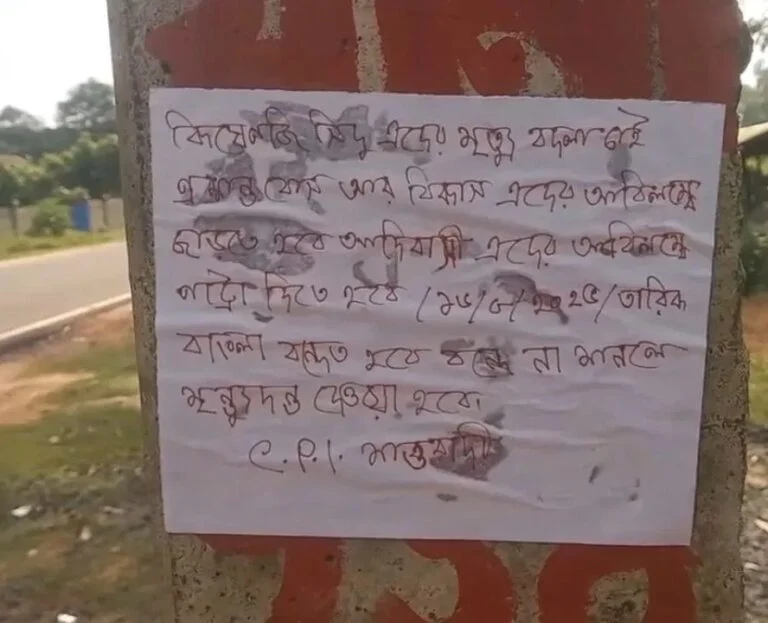 কিষেণজি সিদু এদের মৃত্যু বদলা চাই
প্রশান্ত বোস আর বিকাস এদের অবিলম্বে
ছাড়তে হবে আদিবাসী এদের অবিলম্বে
পাট্টা দিতে হবে /২০২৫/ তারিক
বাংলা বন্দেত হবে বন্দে না মানলে
মৃত্যুদন্ড দেওয়া হবে
C.P.I. মাওবাদী